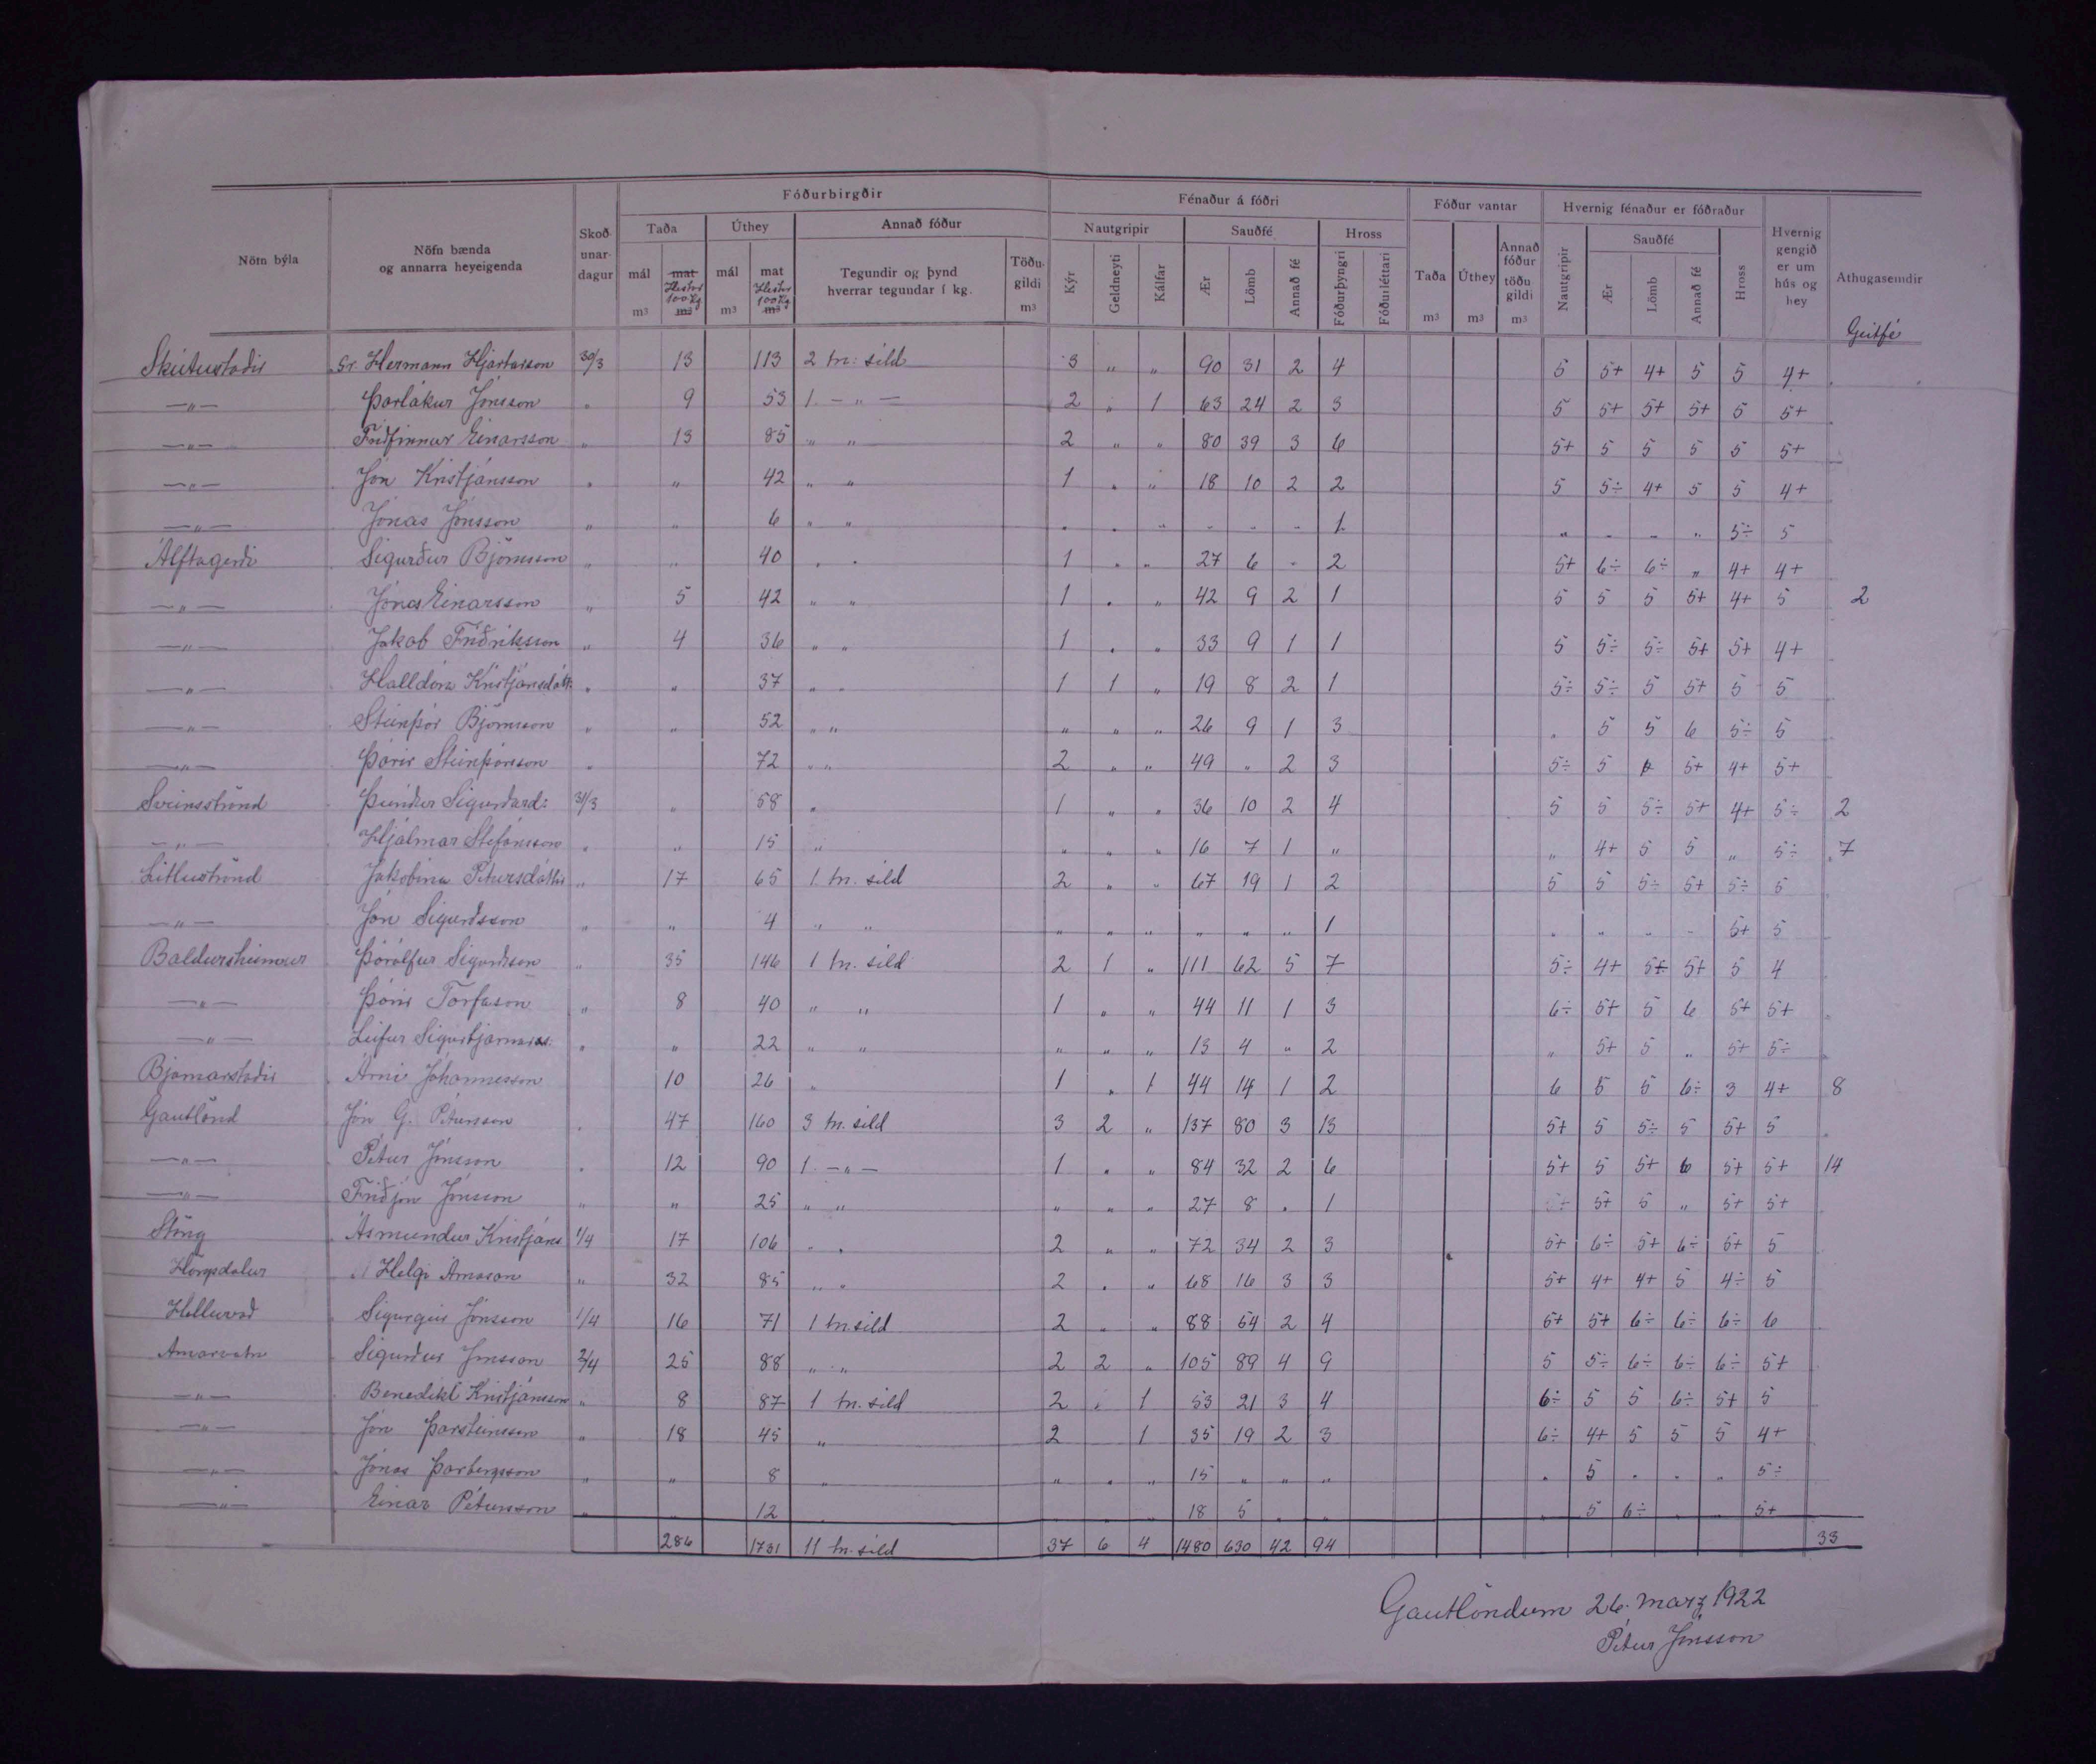 Fóðurbirgðir Fénaður á fóðri Fóður vantar Hvernig fénaður er fóðraður
Nöfn býla Nöfn bænda og annarra heyeigenda Skoðunardagur Taða Úthey Annað fóður Nautgripir Sauðfé Hross Taða Úthey Annað fóður töðugildi Nautgripir Sauðfé Hross Hvernig gengið er um hús og hey Athugasemdir
mál m³ mat Hestar 100 kg m³ mál m³ mat Hestar 100 kg m³ Tegundir og þynd hverrar tegundar í kg. Töðugildi m³ Kýr Geldneyti Kálfar Ær Lömb Annað fé Fóðurþyngri Fóðurléttari m³ m³ m³ Ær Lömb Annað fé
Geitfé
Skútustaðir Sr. Hermann Hjartarson 30/3 13 113 2 tn: síld 3 " " 90 31 2 4 5 5+ 4+ 5 5 4+
—"— Þorlákur Jónsson " 9 53 1 —"— 2 " 1 63 24 2 3 5 5+ 5+ 5+ 5 5+
—"— Friðfinnur Einarsson " 13 85 " " 2 " " 80 39 3 6 5+ 5 5 5 5 5+
—"— Jón Kristjánsson " " 42 " " 1 " " 18 10 2 2 5 5÷ 4+ 5 5 4+
—"— Jónas Jónsson " " 6 " " " " " " " " 1 " " " " 5÷ 5
Álftagerði Sigurður Björnsson " " 40 " " 1 " " 27 6 " 2 5+ 6÷ 6÷ " 4+ 4+
—"— Jónas Einarsson " 5 42 " " 1 " " 42 9 2 1 5 5 5 5+ 4+ 5 2
—"— Jakob Friðriksson " 4 36 " " 1 " " 33 9 1 1 5 5÷ 5÷ 5+ 5+ 4+
—"— Halldóra Kristjánsdótt. " " 37 " " 1 1 " 19 8 2 1 5÷ 5÷ 5 5+ 5 5
—"— Steinþór Björnsson " " 52 " " " " " 26 9 1 3 " 5 5 6 5÷ 5
—"— Þórir Steinþórsson " 72 " " 2 " " 49 " 2 3 5÷ 5 5+ 4+ 5+
Sveinsströnd Þuríður Sigurðard: 31/3 " 58 " 1 " " 36 10 2 4 5 5 5÷ 5+ 4+ 5÷ 2
—"— Hjálmar Stefánsson " " 15 " " " " 16 7 1 " " 4+ 5 5 " 5÷ 7
Litluströnd Jakobína Pétursdóttir " 17 65 1 tn. síld 2 " " 67 19 1 2 5 5 5÷ 5+ 5÷ 5
—"— Jón Sigurðsson " " 4 " " " " " " " " 1 " " " " 5+ 5
Baldursheimur Þórólfur Sigurðsson " 35 146 1 tn. síld 2 1 " 111 62 5 7 5÷ 4+ 5+ 5+ 5 4
—"— Þórir Torfason " 8 40 " " 1 " " 44 11 1 3 6÷ 5+ 5 6 5+ 5+
—"— Leifur " " 22 " " " " " 13 4 " 2 " 5+ 5 " 5+ 5÷
Bjarnarstaðir Árni Jóhannesson 10 26 " 1 " 1 44 14 1 2 6 5 5 6÷ 3 4+ 8
Gautlönd Jón G. Pétursson " 47 160 3 tn. síld 3 2 " 137 80 3 13 5+ 5 5÷ 5 5+ 5
—"— Pétur Jónsson " 12 90 1 —"— 1 " " 84 32 2 6 5+ 5 5+ 6 5+ 5+ 14
—"— Friðjón Jónsson " " 25 " " " " " 27 8 " 1 5+ 5 " 5+ 5+
Stöng Ásmundur Kristjáns 1/4 17 106 " " 2 " " 72 34 2 3 5+ 6÷ 5+ 6÷ 5+ 5
Hörgsdalur Helgi Árnason " 32 85 " " 2 " " 68 16 3 3 5+ 4+ 4+ 5 4÷ 5
Helluvað Sigurgeir Jónsson 1/4 16 71 1 tn. síld 2 " " 88 54 2 4 5+ 5+ 6÷ 6÷ 6÷ 6
Arnarvatn Sigurður Jónsson 2/4 25 88 " " 2 2 " 105 89 4 9 5 5÷ 6÷ 6÷ 6÷ 5+
—"— Benedikt Kristjánsson " 8 87 1 tn. síld 2 " 1 53 21 3 4 6÷ 5 5 6÷ 5+ 5
—"— Jón Þorsteinsson " 18 45 " 2 1 35 19 2 3 6÷ 4+ 5 5 5 4+
—"— Jónas Þorbergsson " " 8 " " " " 15 " " " " 5 " " " 5÷
—"— Einar Pétursson " " 12 " " " 18 5 " " " 5 6÷ " " 5+
286 1731 11 tn. síld 37 6 4 1480 630 42 94 33
Gautlöndum 26. marz 1922
Pétur Jónsson